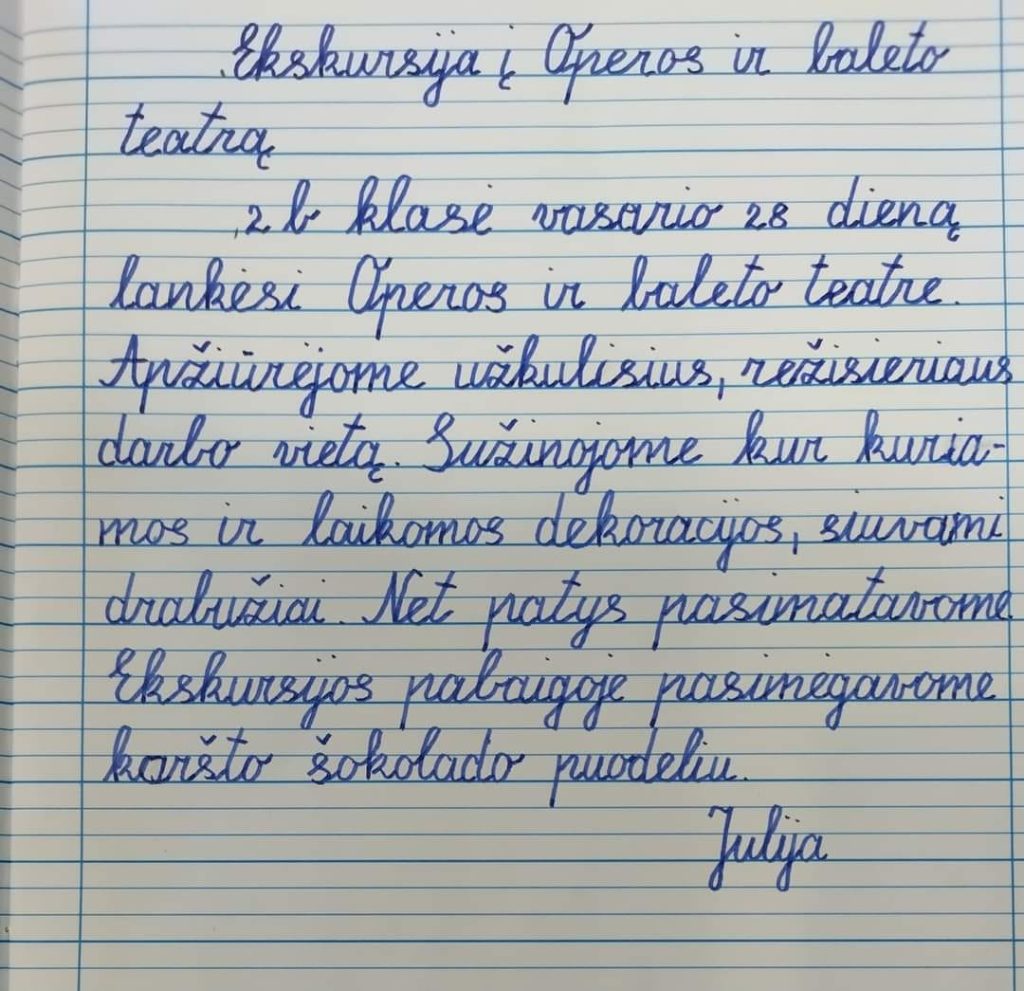 Ekskursija į Operos ir baleto
teatrą
2 b klasė vasario 28 dieną
lankėsi Operos ir baleto teatre.
Apžiūrėjome užkulisius, režisieriaus
darbo vietą. Sužinojome kur kuria-
mos ir laikomos dekoracijos, siuvami
drabužiai. Net patys pasimatavome
Ekskursijos pabaigoje pasimėgavome
karšto šokolado puodeliu.
Julija